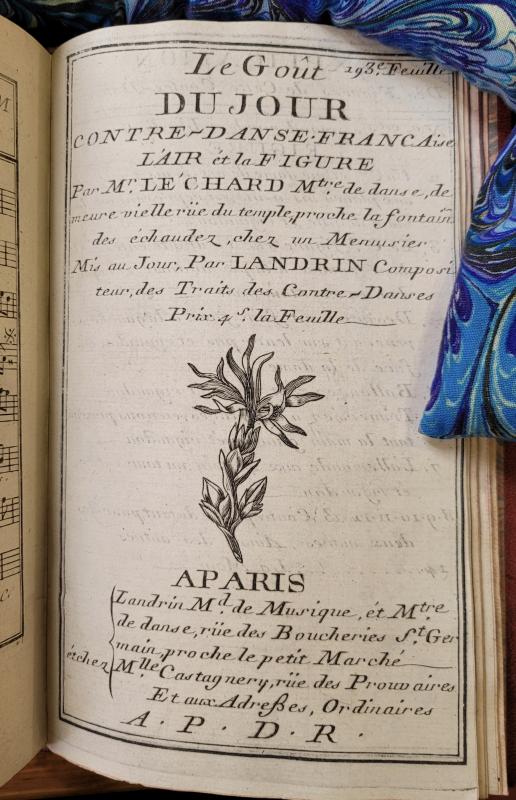 Le Goût 193e. Feuille
DU JOUR
CONTRE-DANSE-FRANCAise
L'AIR ét la FIGURE
Par Mr. LE'CHARD Mtre. de danse, de-
meure vielle rüe du temple, proche la fontain
des échaudez, chez un Menuisier
Mis au Jour, Par LANDRIN Composi
teur, des Traits des Contre-Danses
Prix 4 s. la Feuille
A PARIS
Landrin Md. de Musique, ét Mtre
de danse, rüe des Boucheries St. Ger
main, proche le petit Marché
ét chez Mlle Castagnery, rüe des Prouvaires
Et aux Adreßes, Ordinaires
A. P. D. R.
M